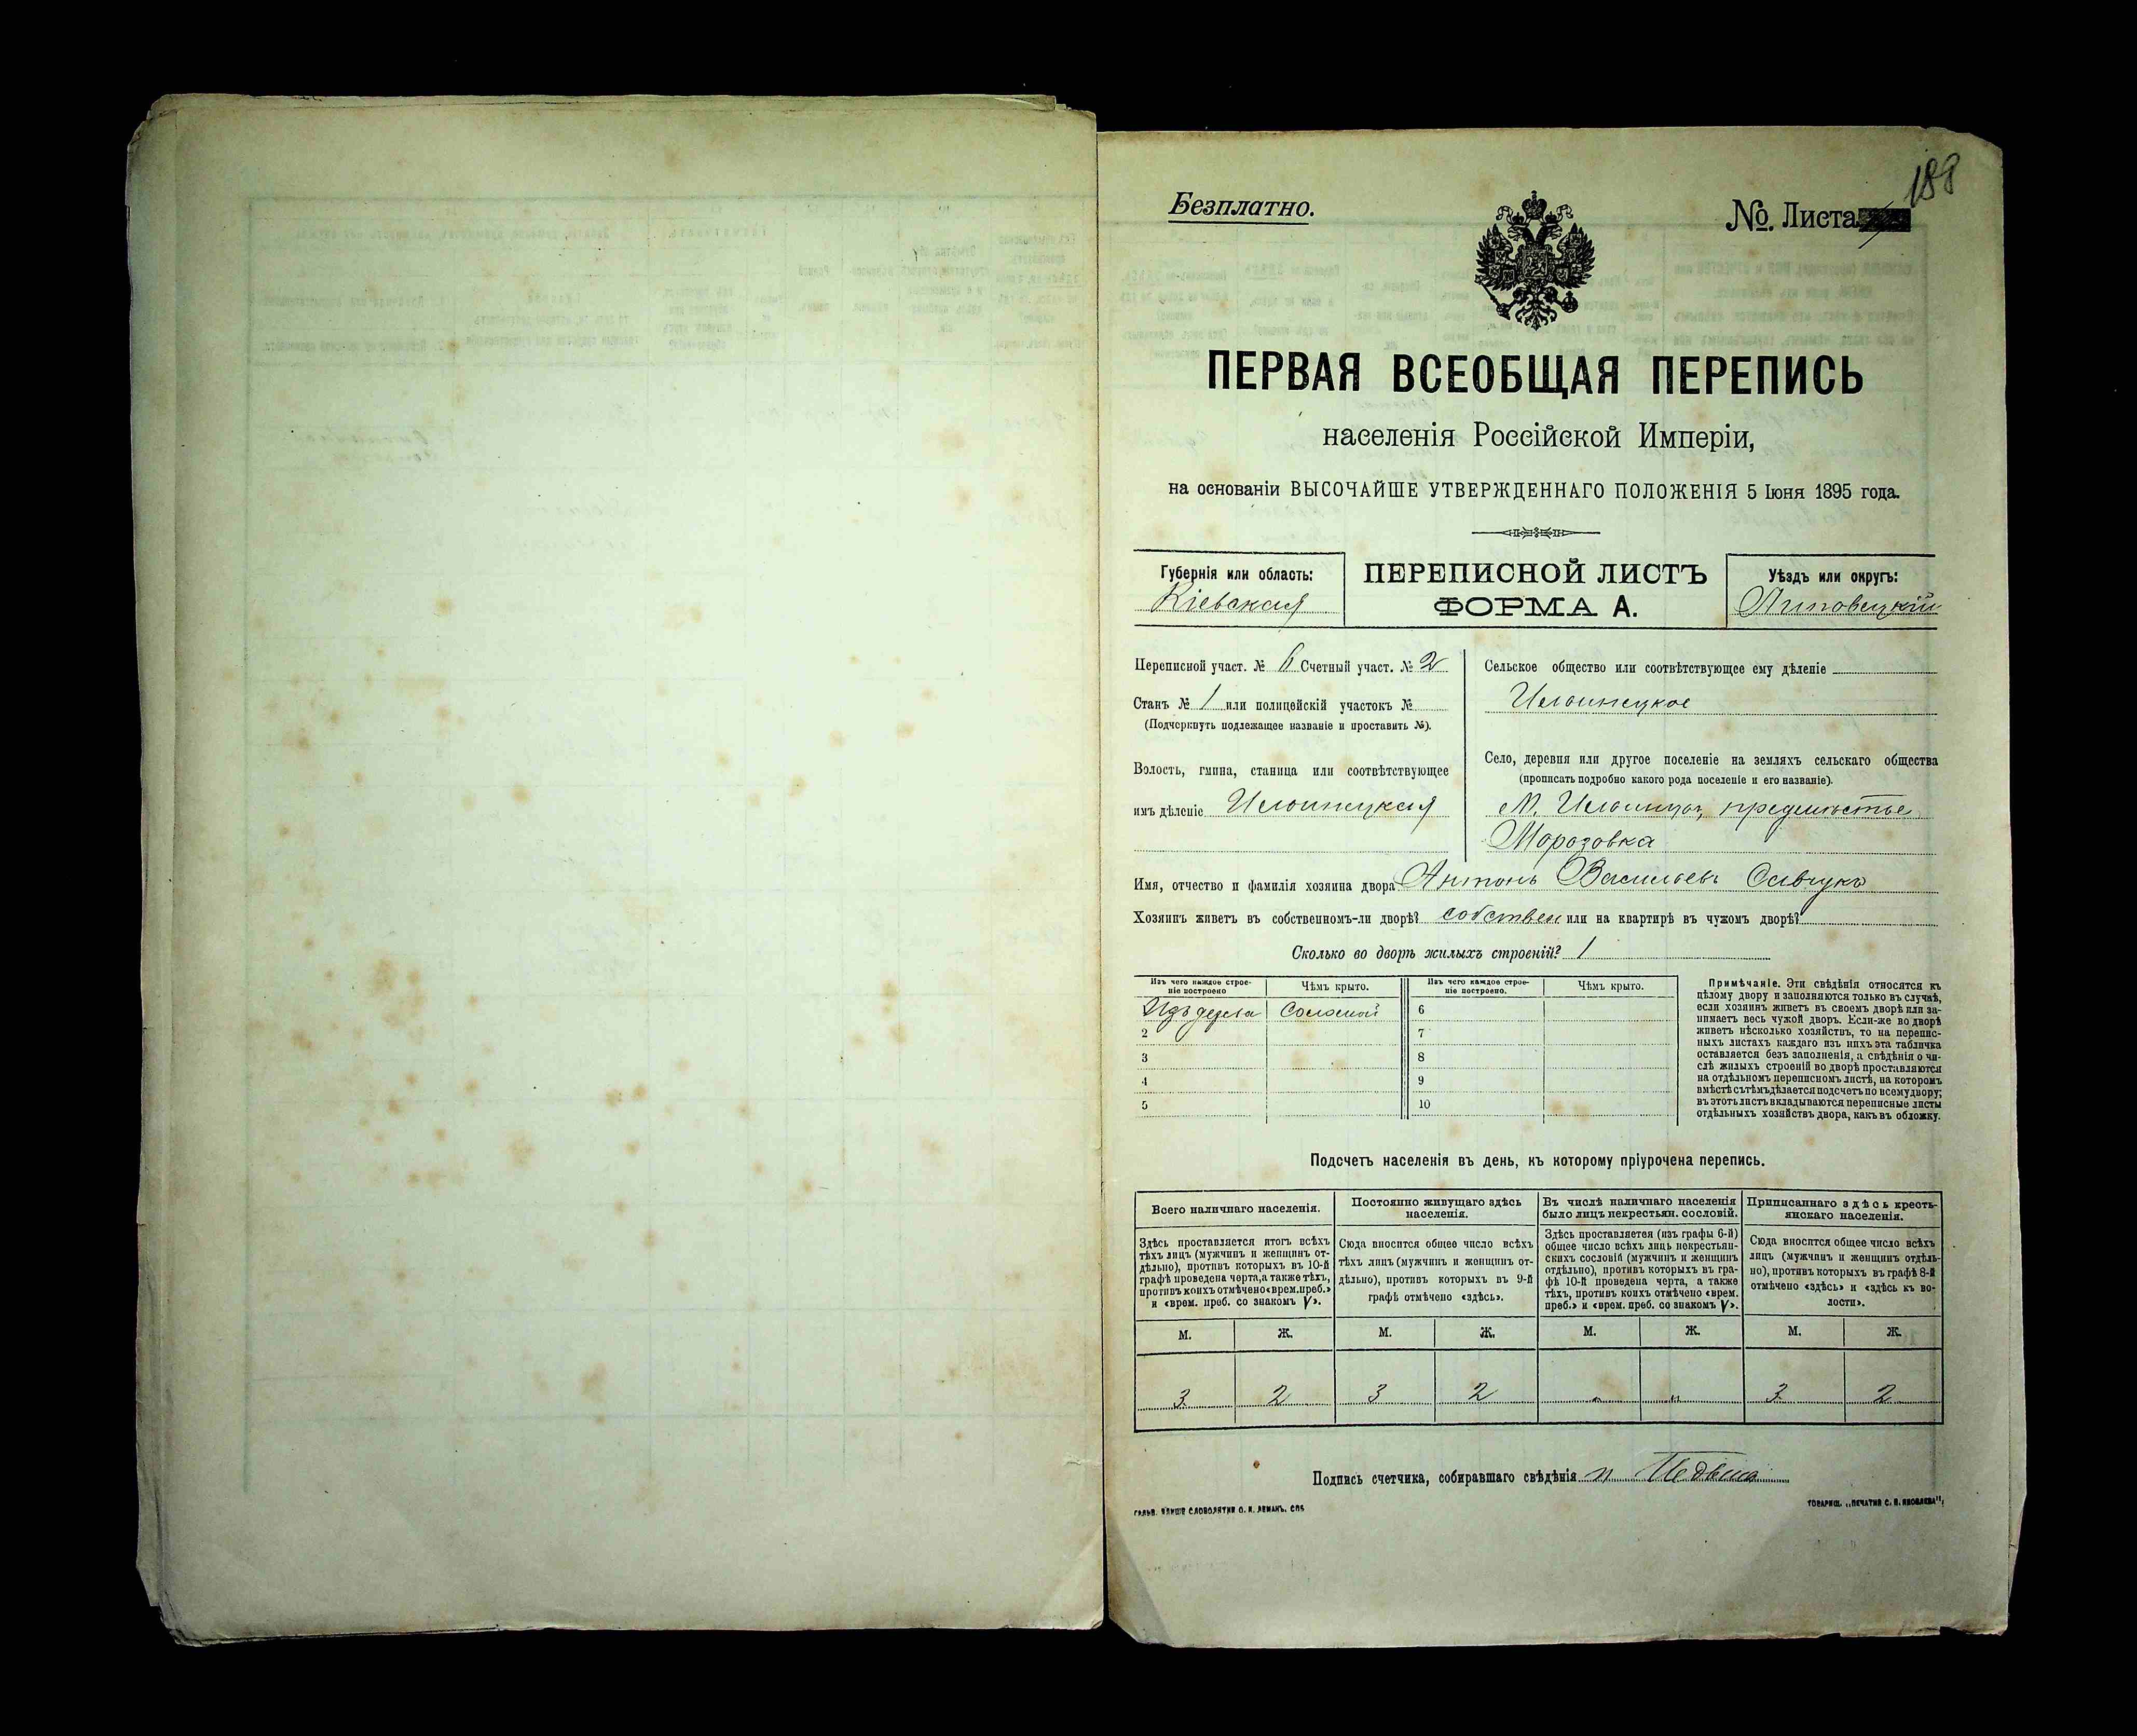 188
Безплатно.
№. Листа
ПЕРВАЯ ВСЕОБЩАЯ ПЕРЕПИСЬ
населенія Россійской Имперіи,
на основаніи ВЫСОЧАЙШЕ УТВЕРЖДЕННАГО ПОЛОЖЕНІЯ 5 Іюня 1895 года.
Губернія или область:
Кіевская
ПЕРЕПИСНОЙ ЛИСТЪ
ФОРМА А.
Уѣздъ или округъ:
Липовецкій
Переписной участ. № 6 Счетный участ. № 2
Станъ № 1 или полицейскій участокъ №
(Подчеркнуть подлежащее названіе и проставить №).
Волость, гмина, станица или соотвѣтствующее
имъ дѣленіе Ильинецкая
Сельское общество или соотвѣтствующее ему дѣленіе
Ильинецкое
Село, деревня или другое поселеніе на земляхъ сельскаго общества
(прописать подробно какого рода поселеніе и его названіе).
М. Ильинцы, предмѣстье
Морозовка
Имя, отчество и фамилія хозяина двора Антонъ Васильевъ Савчукъ
Хозяинъ живетъ въ собственномъ-ли дворѣ? собствен или на квартирѣ въ чужомъ дворѣ?
Сколько во дворѣ жилыхъ строеній? 1
Изъ чего каждое строе-
ніе построено
Чѣмъ крыто.
Изъ чего каждое строе-
ніе построено.
Чѣмъ крыто.
Изъ дерева Соломой 6
2 7
3 8
4 9
5 10
Примѣчаніе. Эти свѣдѣнія относятся къ
цѣлому двору и заполняются только въ случаѣ,
если хозяинъ живетъ въ своемъ дворѣ или за-
нимаетъ весь чужой дворъ. Если-же во дворѣ
живетъ нѣсколько хозяйствъ, то на перепис-
ныхъ листахъ каждаго изъ нихъ эта табличка
оставляется безъ заполненія, а свѣдѣнія о чи-
слѣ жилыхъ строеній во дворѣ проставляются
на отдѣльномъ переписномъ листѣ, на которомъ
вмѣстѣ съ тѣмъ дѣлается подсчетъ по всему двору;
въ этотъ листъ вкладываются переписные листы
отдѣльныхъ хозяйствъ двора, какъ въ обложку.
Подсчетъ населенія въ день, къ которому пріурочена перепись.
Всего наличнаго населенія.
Здѣсь проставляется итогъ всѣхъ
тѣхъ лицъ (мужчинъ и женщинъ от-
дѣльно), противъ которыхъ въ 10-й
графѣ проведена черта, а также тѣхъ,
противъ коихъ отмѣчено «врем. преб.»
и «врем. преб. со знакомъ V».
Постоянно живущаго здѣсь
населенія.
Сюда вносится общее число всѣхъ
тѣхъ лицъ (мужчинъ и женщинъ от-
дѣльно), противъ которыхъ въ 9-й
графѣ отмѣчено «здѣсь».
Въ числѣ наличнаго населенія
было лицъ некрестьян. сословій.
Здѣсь проставляется (изъ графы 6-й)
общее число всѣхъ лицъ некрестьян-
скихъ сословій (мужчинъ и женщинъ
отдѣльно), противъ которыхъ въ гра-
фѣ 10-й проведена черта, а также
тѣхъ, противъ коихъ отмѣчено «врем.
преб.» и «врем. преб. со знакомъ V».
Приписаннаго здѣсь кресть-
янскаго населенія.
Сюда вносится общее число всѣхъ
лицъ (мужчинъ и женщинъ отдѣль-
но), противъ которыхъ въ графѣ 8-й
отмѣчено «здѣсь» и «здѣсь къ во-
лости».
М. Ж. М. Ж. М. Ж. М. Ж.
3 2 3 2 „ „ 3 2
Подпись счетчика, собиравшаго свѣдѣнія
ГАЛЬВ. КЛИШЕ СЛОВОЛИТНИ О. И. ЛЕМАНЪ. СПБ
ТОВАРИЩ. „ПЕЧАТНЯ С. П. ЯКОВЛЕВА“;